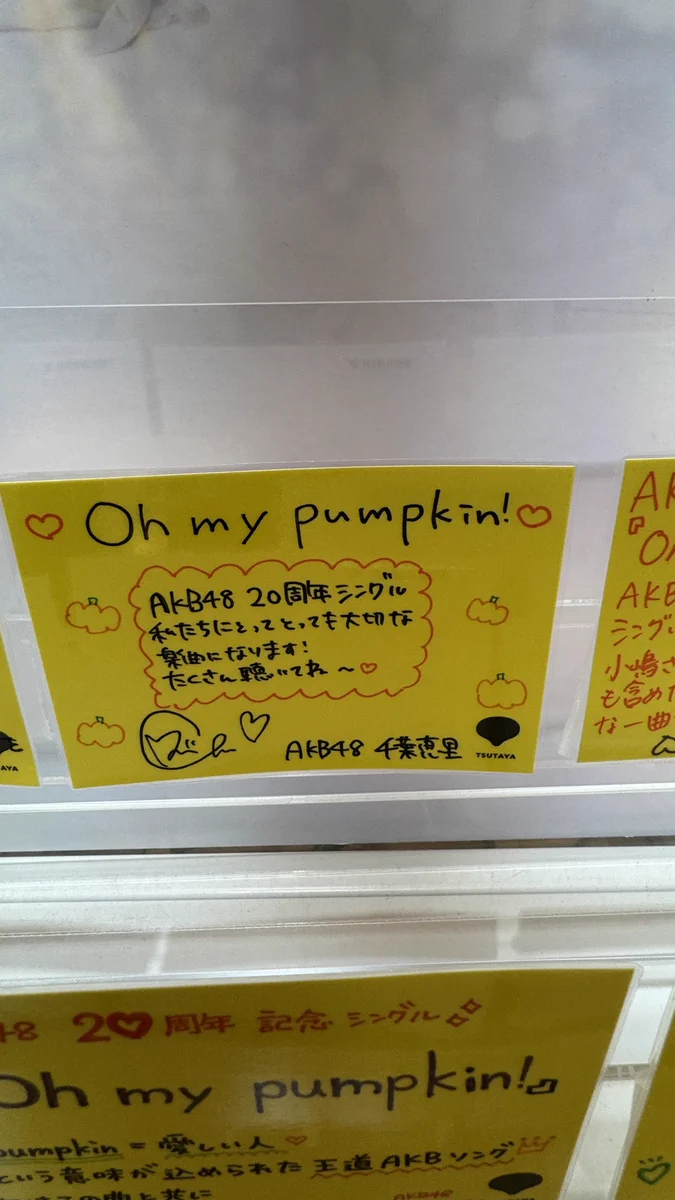 Oh my pumpkin!
AKB48 20周年シングル
私たちにとってとっても大切な
楽曲になります!
たくさん聴いてね〜
AKB48 千葉恵里
TSUTAYA
AYA
AK
『O
AKB
シングル
小嶋さ
も含めた
な一曲
48 20周年 記念 シングル
Oh my pumpkin!』
pumpkin = 愛しい人
という意味が込められた 王道AKBソング
この曲と共に
AKB48